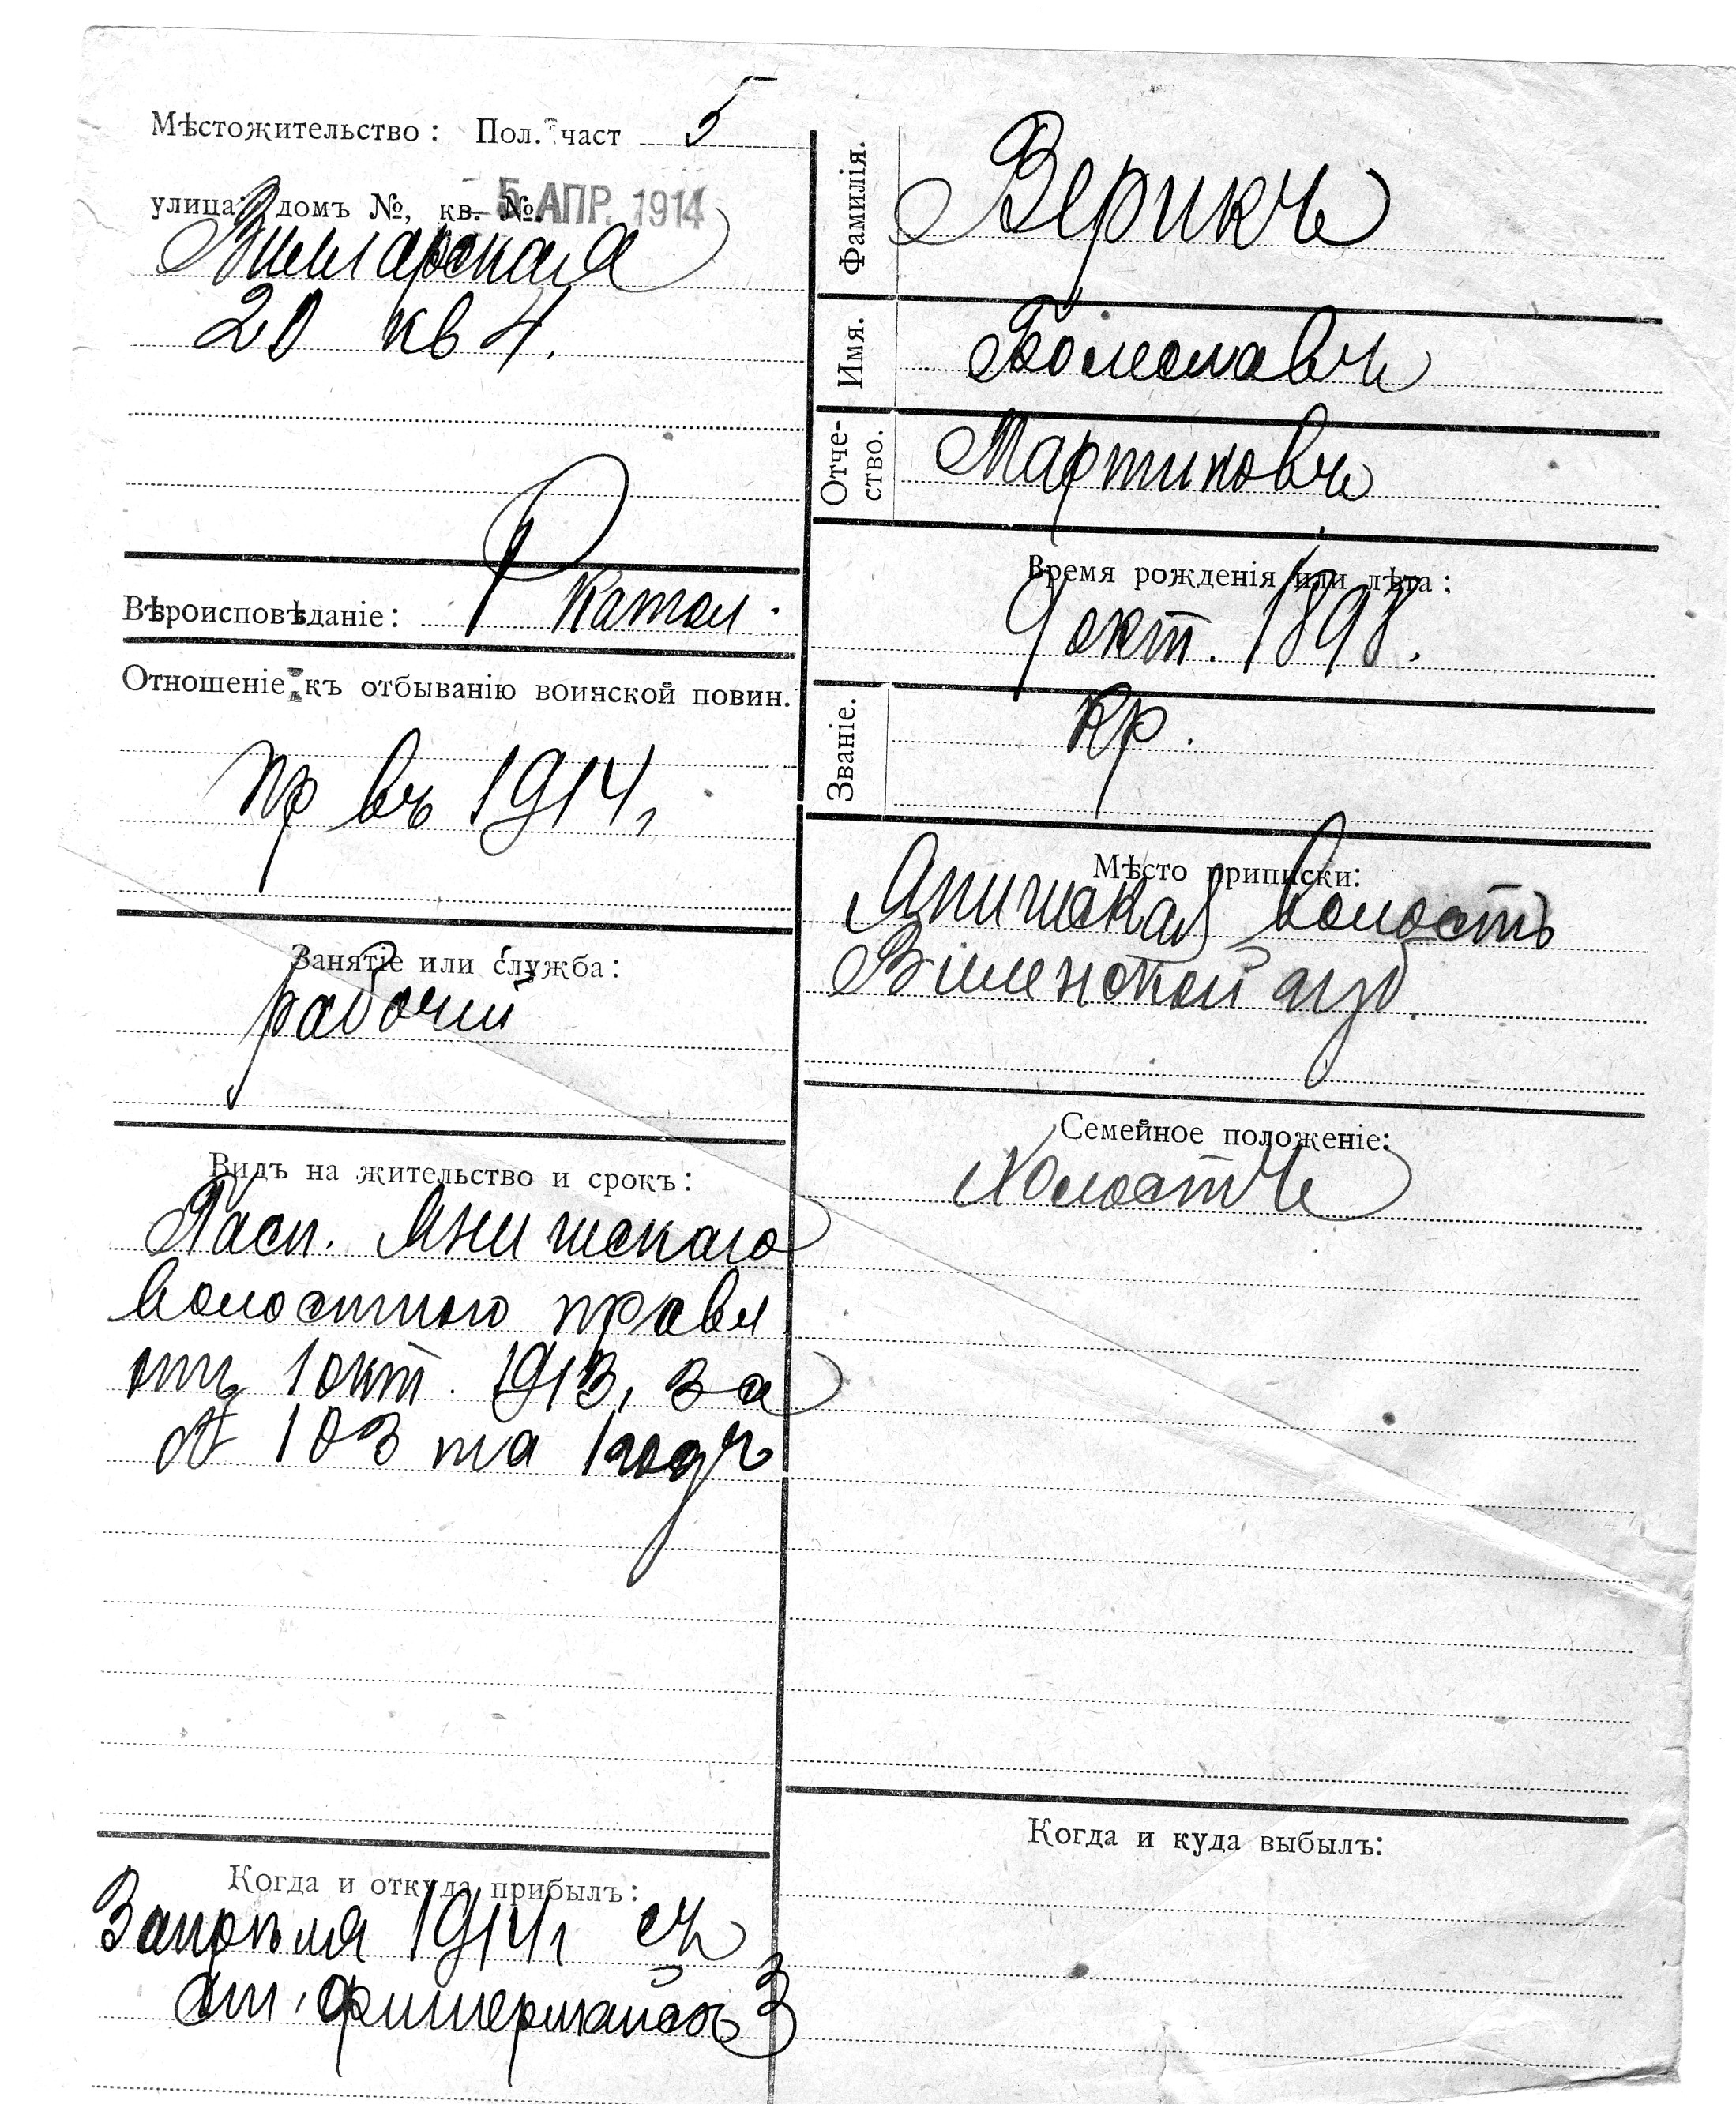 Мѣстожительство: Пол. част 5
улица, домъ №, кв. №.
5 АПР. 1914
20 кв 4.
Вѣроисповѣданіе: Р Катол.
Отношеніе къ отбыванію воинской повин.
пр въ 1914 г
Занятіе или служба:
рабочій
Видъ на жительство и срокъ:
Пасп. Янишскаго
волостного правл
отъ 1 окт. 1913 г за
№ 103 на 1 годъ
Когда и откуда прибылъ:
3 апрѣля 1914 г съ
ст.
Фамилія.
Верикъ
Имя.
Болеславъ
Отче-
ство.
Мартиновъ
Время рожденія или лѣта:
9 окт. 1898.
Званіе.
Кр.
Мѣсто приписки:
Янишская волость
Виленской губ.
Семейное положеніе:
Холостъ
Когда и куда выбылъ: